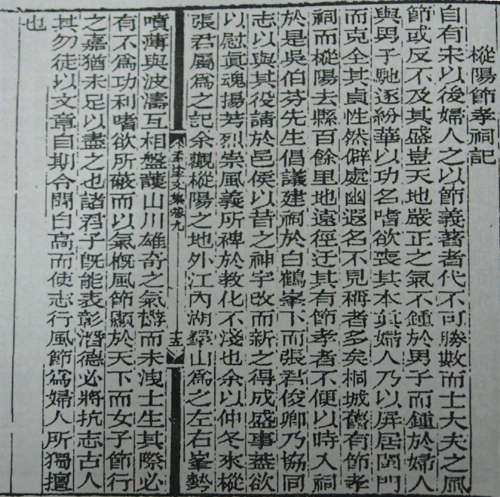 樅陽節孝祠記
自有未以後婦人之以節義著者代不可勝數而士大夫之風
節或反不及其盛豈天地嚴正之氣不鍾於男子而鍾於婦人
與男子馳逐紛華以功名嗜欲喪其本真婦人乃以屏居閨門
而克全其貞性然僻處幽遐名不見稱者多矣桐城舊有節孝
祠而樅陽去縣百餘里地遠徑迂其有節孝者不便以時入祠
於是吳伯芬先生倡議建祠於白鶴峯下而張君俊卿乃協同
志以與其役請於邑侯以昔之神宇改而新之得成盛事蓋欲
以慰貞魂揚芳烈崇風義所裨於教化不淺也余以仲冬來樅
張君屬爲之記余觀樅陽之地外江內湖羣山爲之左右峯勢
孟塗文集卷九
噴薄與波濤互相盤護山川雄奇之氣鬱而未洩士生其際必
有不爲功利嗜欲所蔽而以氣概風節顯於天下而女子節行
之嘉猶未足以盡之也諸君子旣能表彰潛德必將抗志古人
其勿徒以文章自期令問自高而使志行風節爲婦人所獨擅
也